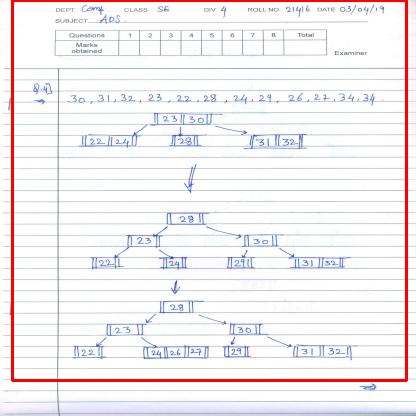 DEPT. Comp CLASS SE DIV 4 ROLL NO. 21416 DATE 03/04/19
SUBJECT ADS.
Questions 1 2 3 4 5 6 7 8 Total
Marks obtained
Examiner
Q.4]
30, 31, 32, 23, 22, 28, 24, 29, 26, 27, 34, 34.
23 30
22 24 28 31 32
28
23 30
22 24 29 31 32
28
23 30
22 24 26 27 29 31 32